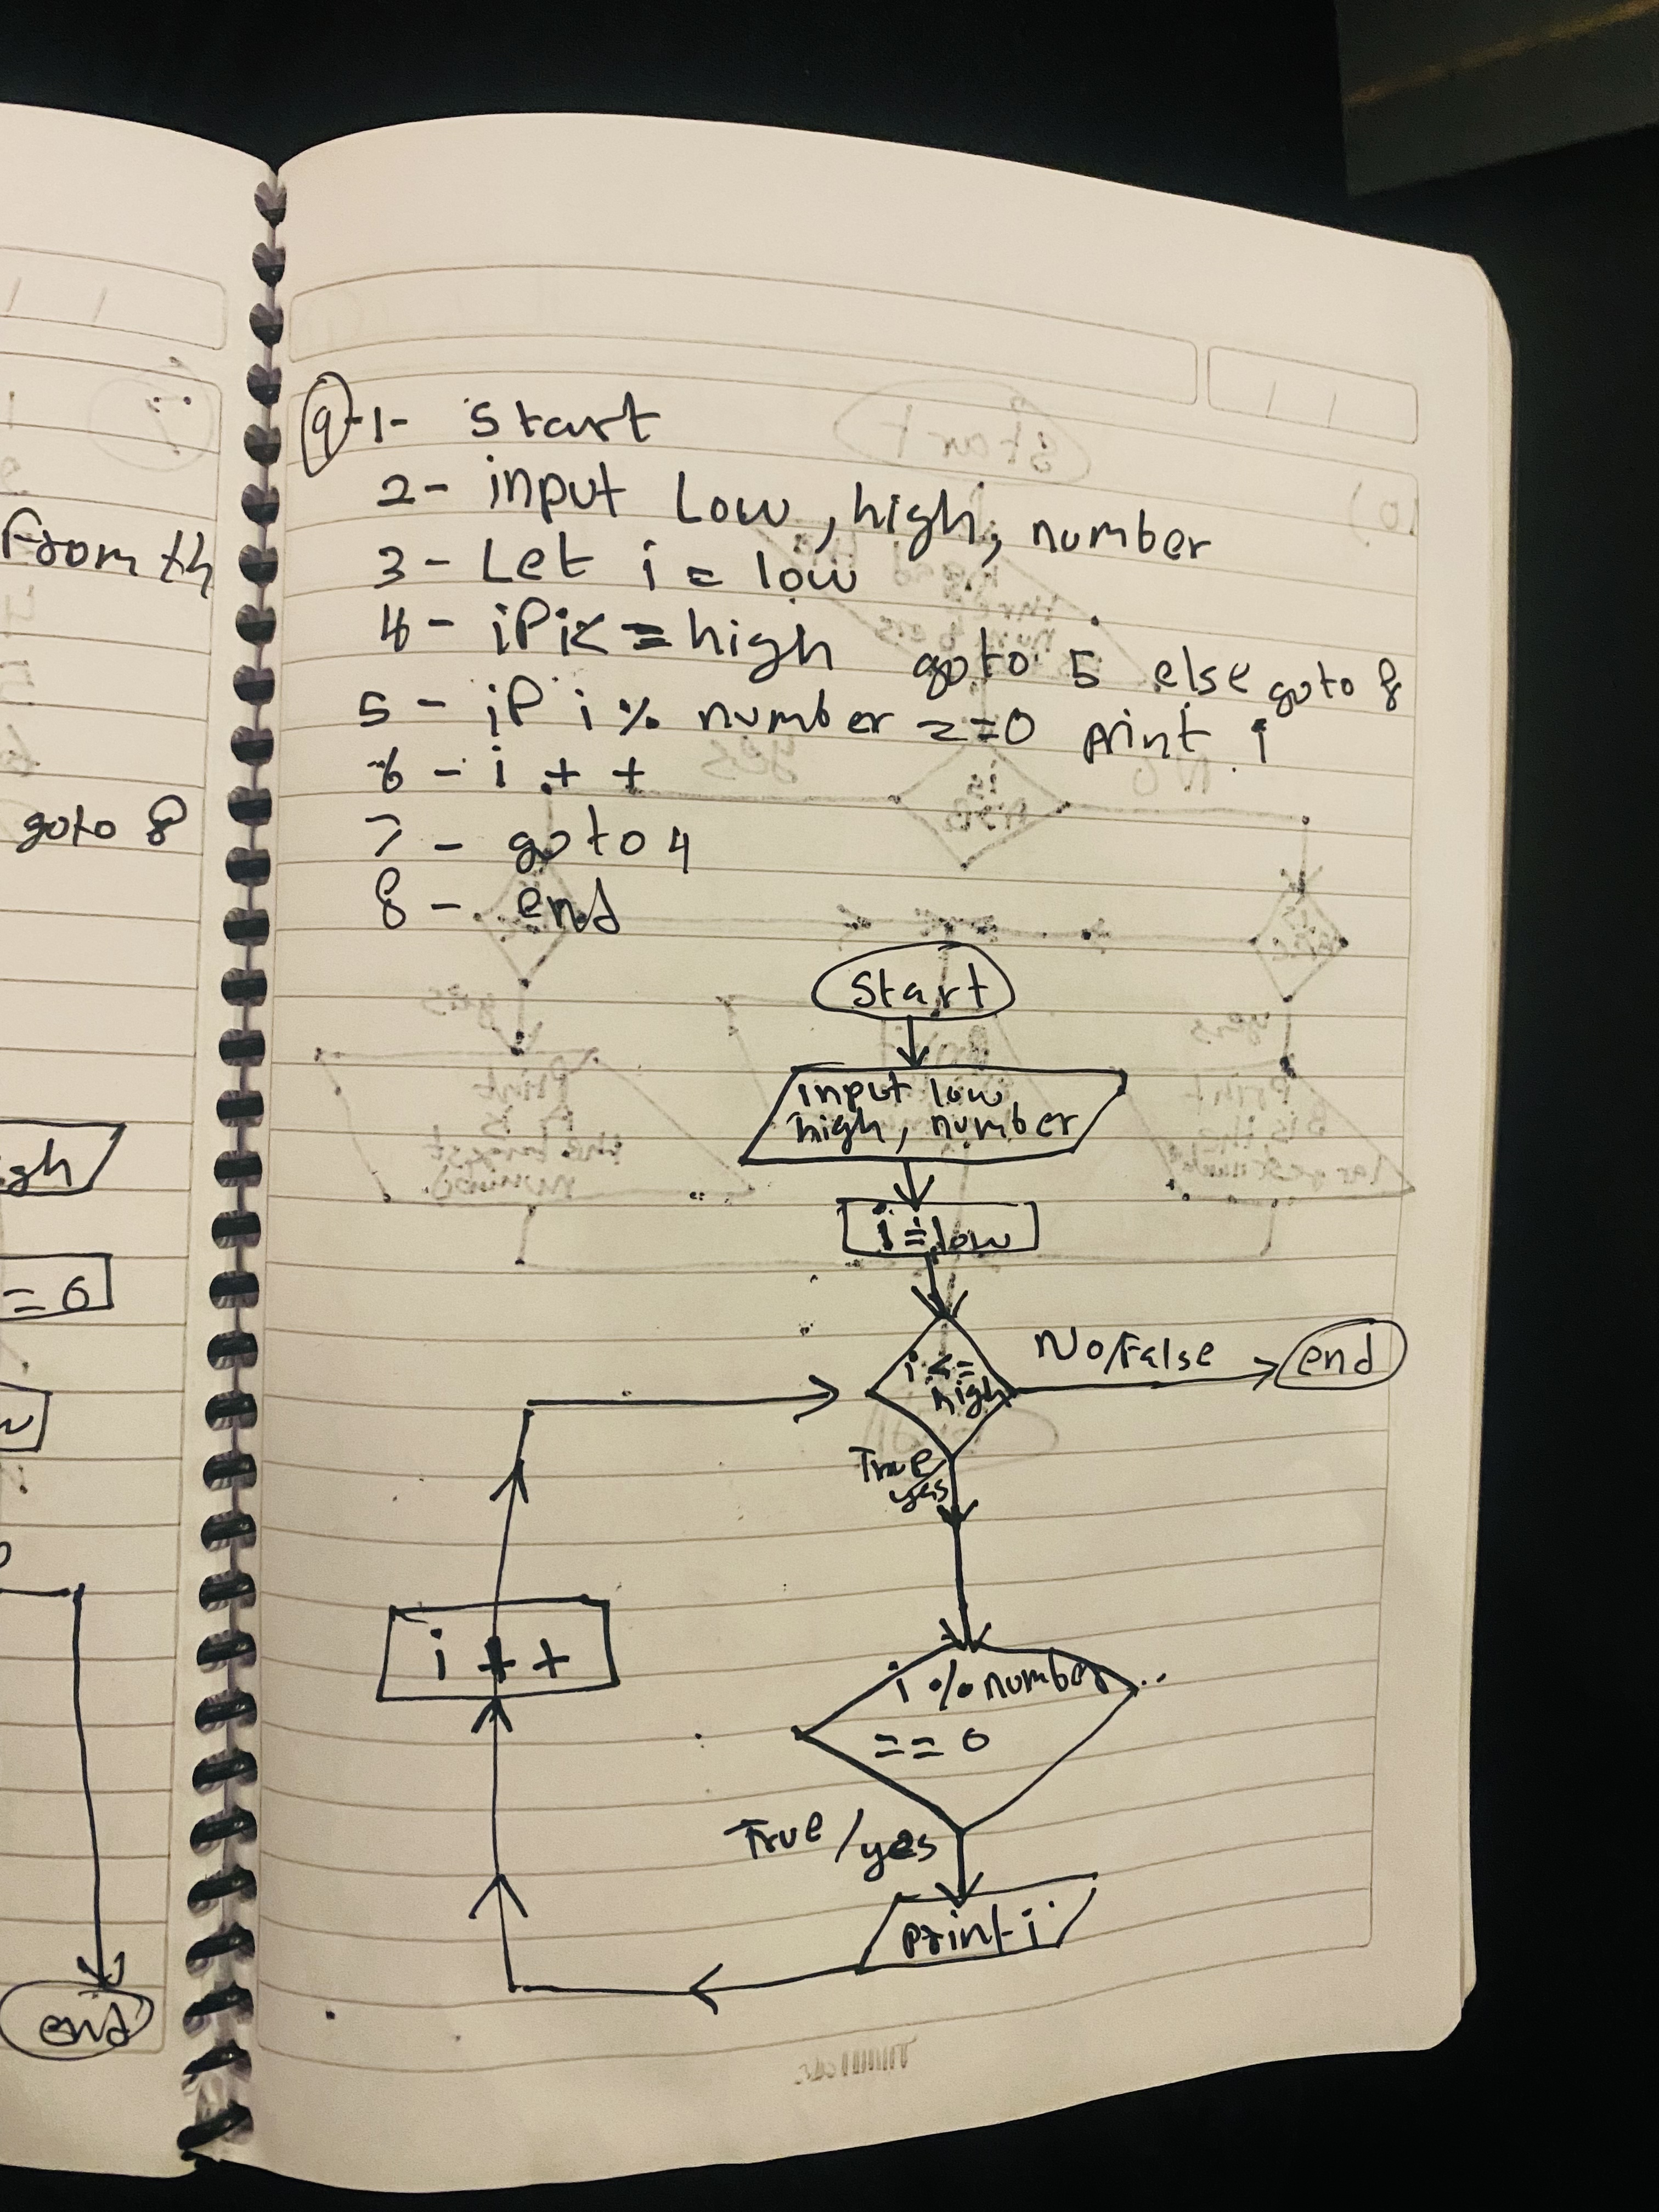 From th
goto 8
gh
= 0
w
end
9-1- Start
2- input Low, high, number
3- Let i = low
4- if i<=high goto 5 else goto 8
5- if i % number ==0 print i
6- i ++
7- goto 4
8- end
Start
input low,
high, number
i=low
i <=
high
No/False
end
True/
yes
i ++
i % number
== 0
True/yes
print i